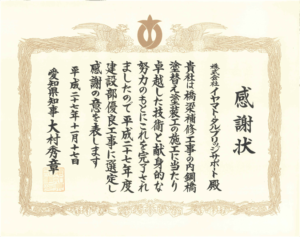 感謝状
株式会社イヤマトータルブリッジサポート殿
貴社は橋梁補修工事の内鋼橋
塗替え塗装工の施工に当たり
卓越した技術と献身的な
努力のもとにこれを完了され
ましたので平成二十七年度
建設部優良工事に選定し
感謝の意を表します
平成二十七年十一月十七日
愛知県知事 大村秀章